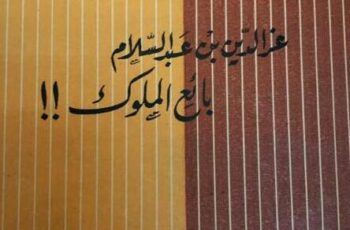 عز الدّين بْن عَبد السّلام
بائع الملوك !!